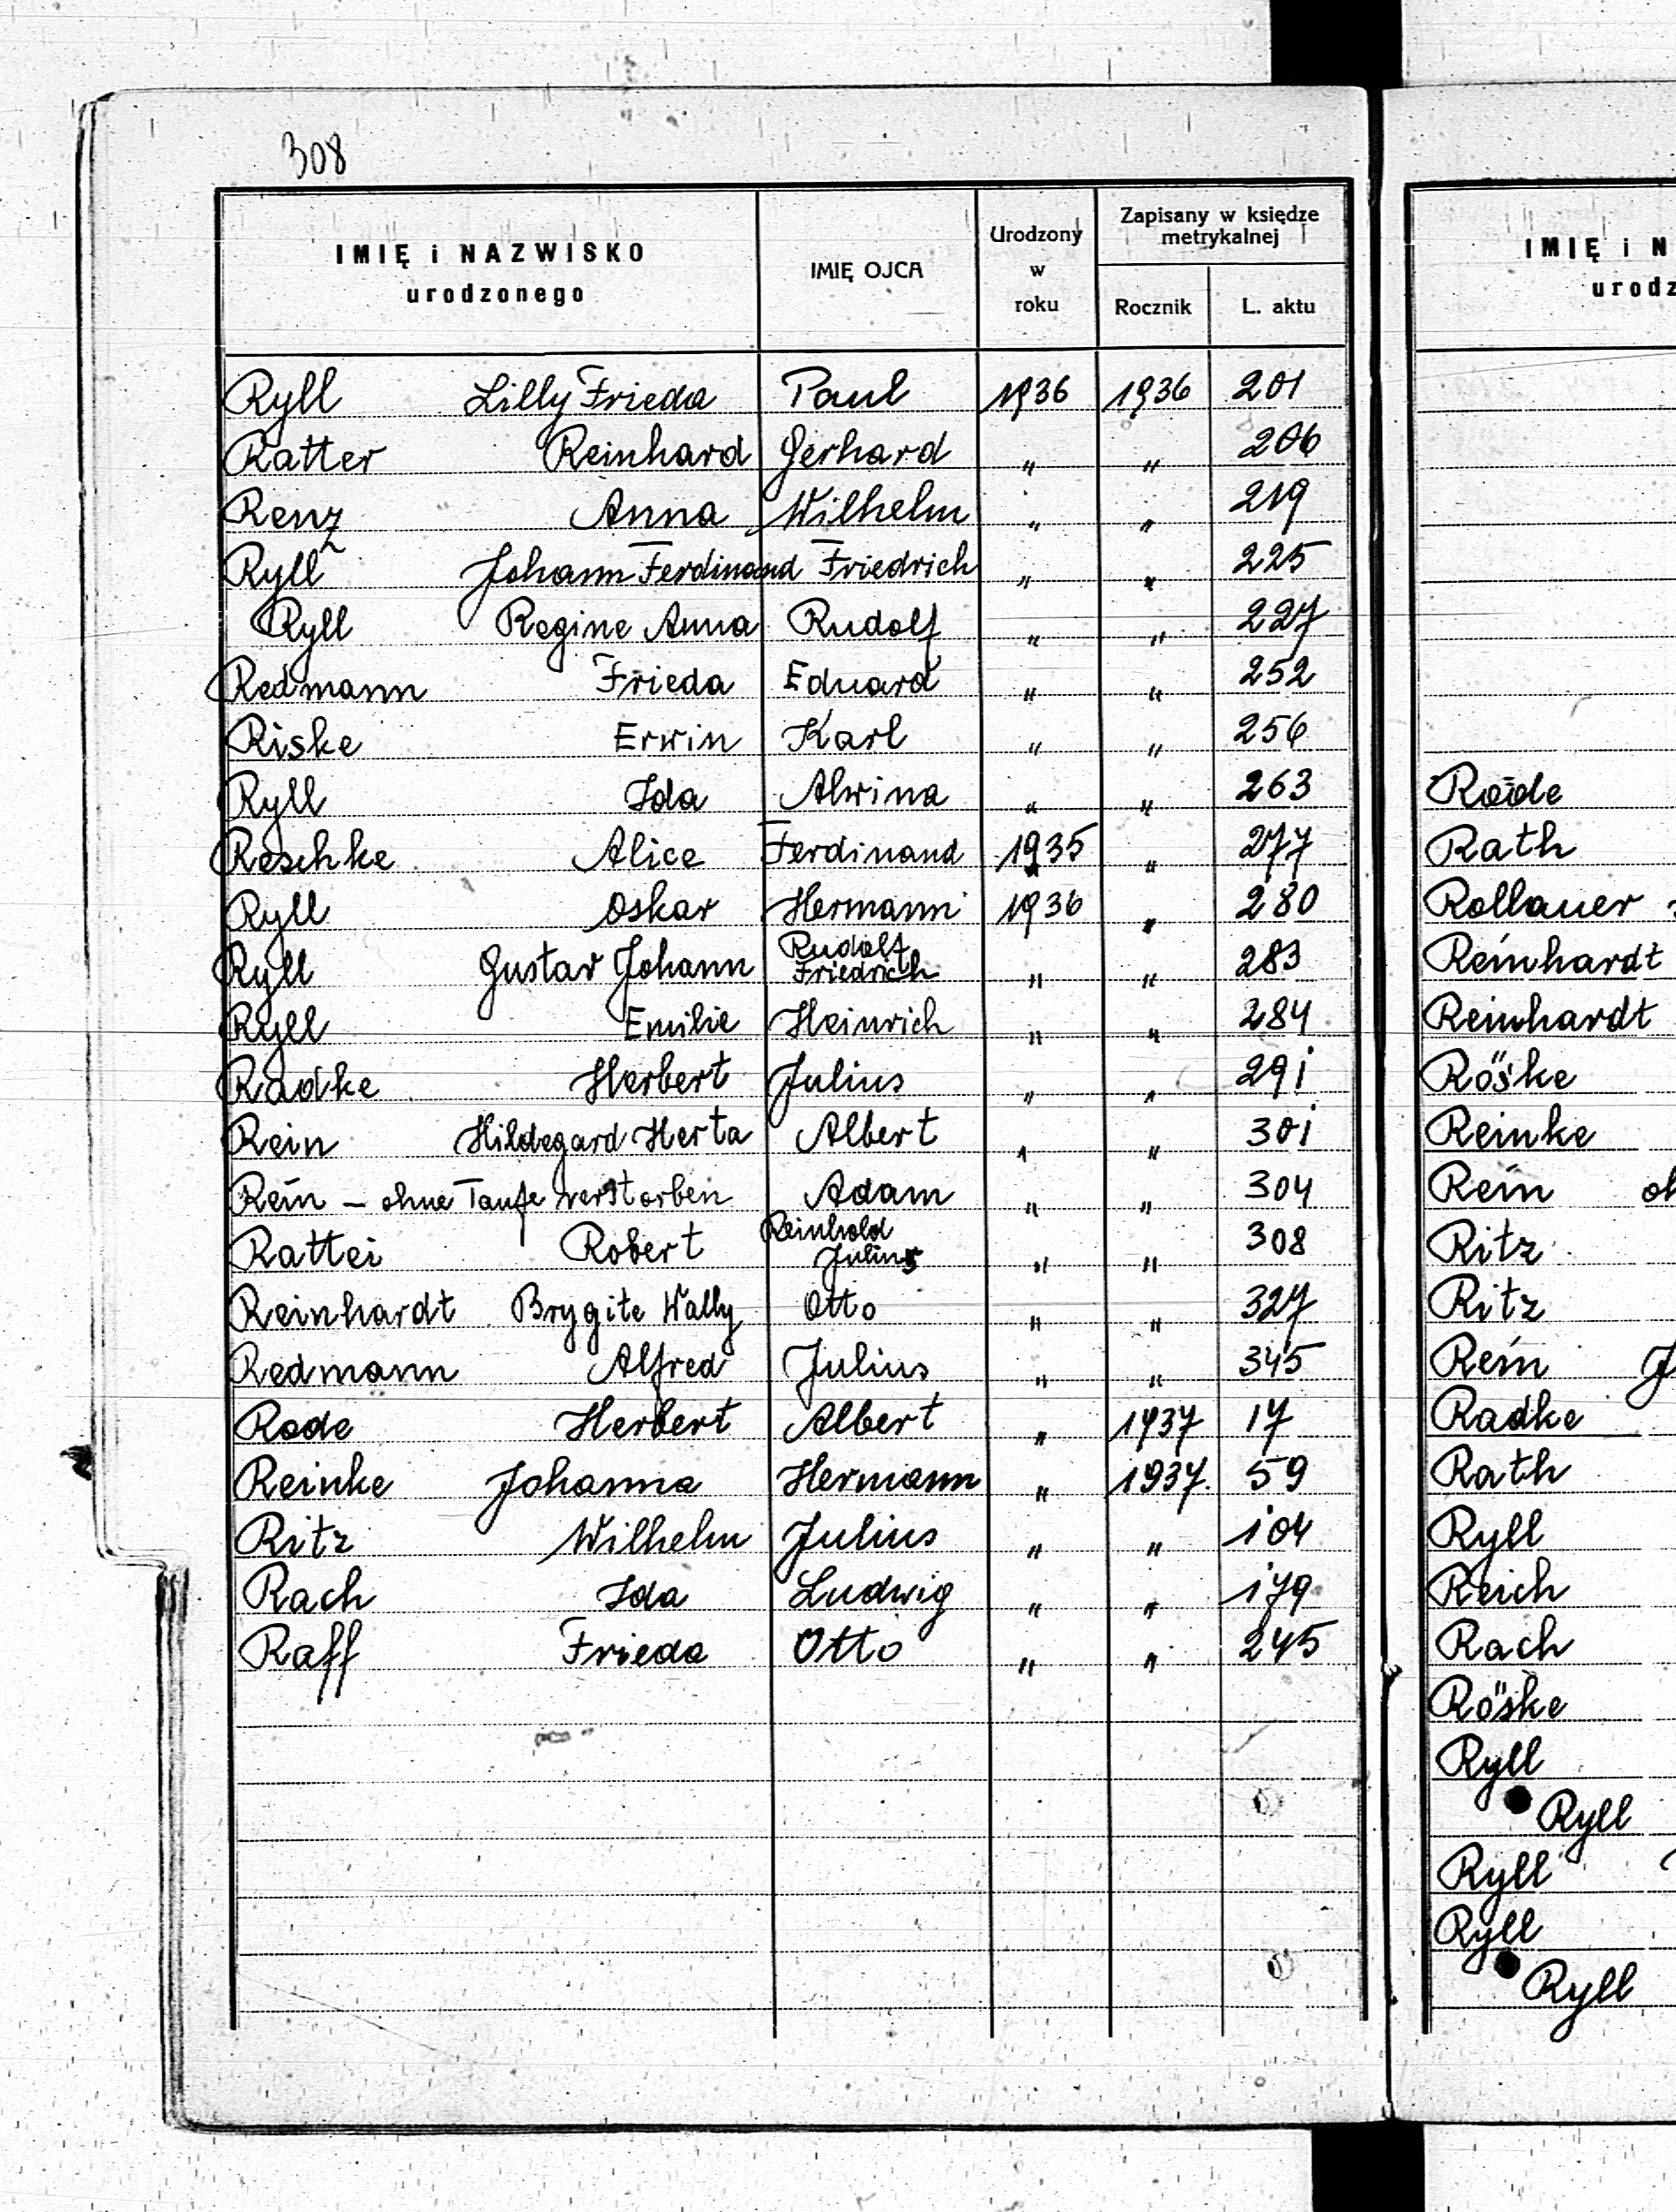 308
IMIĘ i NAZWISKO urodzonego | IMIĘ OJCA | Urodzony w roku | Zapisany w księdze metrykalnej
Rocznik | L. aktu
Ryll Lilly Frieda Paul 1936 1936 201
Ratter Reinhard Gerhard " " 206
Renz Anna Wilhelm " " 219
Ryll Johann Ferdinand Friedrich " " 225
Ryll Regine Anna Rudolf " " 227
Redmann Frieda Eduard " " 252
Riske Erwin Karl " " 256
Ryll Ida Alwina " " 263
Reschke Alice Ferdinand 1935 " 277
Ryll Oskar Hermann 1936 " 280
Ryll Gustav Johann Rudolf Friedrich " " 283
Ryll Emilie Heinrich " " 284
Radke Herbert Julius " " 291
Rein Hildegard Herta Albert " " 301
Rein – ohne Taufe verstorben Adam " " 304
Rattei Robert Reinhold Julius " " 308
Reinhardt Brygite Wally Otto " " 327
Redmann Alfred Julius " " 345
Rode Herbert Albert " 1937 17
Reinke Johanna Hermann " 1937. 59
Ritz Wilhelm Julius " " 104
Rach Ida Ludwig " " 179
Raff Frieda Otto " " 245
IMIĘ i N
urodz
Rode
Rath
Rollauer
Reinhardt
Reinhardt
Röske
Reinke
Rein oh
Ritz
Ritz
Rein J
Radke
Rath
Ryll
Reich
Rach
Röske
Ryll
Ryll
Ryll
Ryll
Ryll